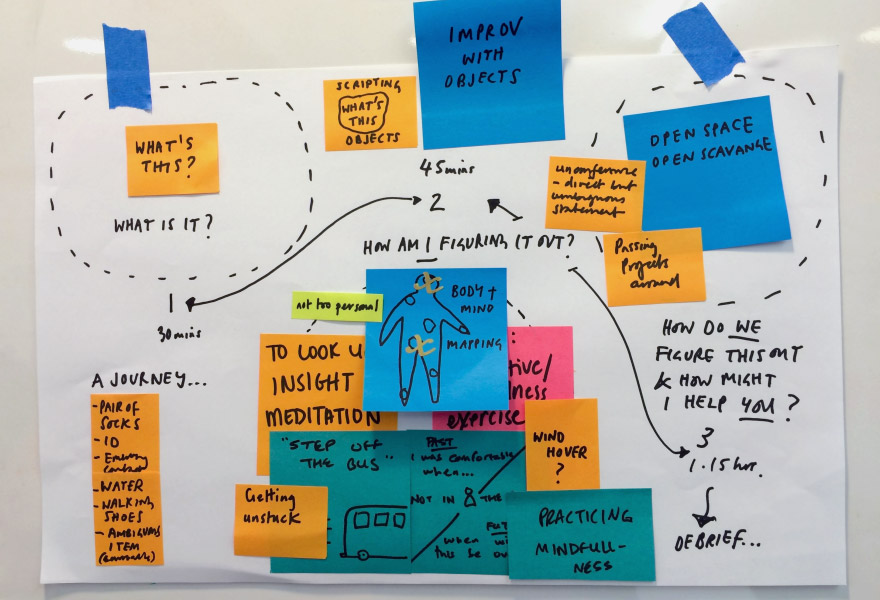 IMPROV
WITH
OBJECTS
SCRIPTING
WHAT'S
THIS
OBJECTS
WHAT'S
THIS?
WHAT IS IT?
OPEN SPACE
OPEN SCAVANGE
unconference
- direct but
ambiguous
statement
Passing
Projects
around
45mins
2
HOW AM I FIGURING IT OUT?
1
30mins
not too personal
BODY +
MIND
MAPPING
TO LOOK
INSIGHT
MEDITATION
exercise
A JOURNEY...
- PAIR OF
SOCKS
- ID
contact
- WATER
- WALKING
SHOES
- AMBIGUOUS
ITEM
"STEP OFF
THE BUS"
Getting
unstuck
PAST
I was comfortable
when...
NOT IN THE
when
this be
WIND
HOVER
?
PRACTICING
MINDFULL-
NESS
HOW DO WE
FIGURE THIS OUT
& HOW MIGHT
I HELP YOU?
3
1.15hr.
DEBRIEF...